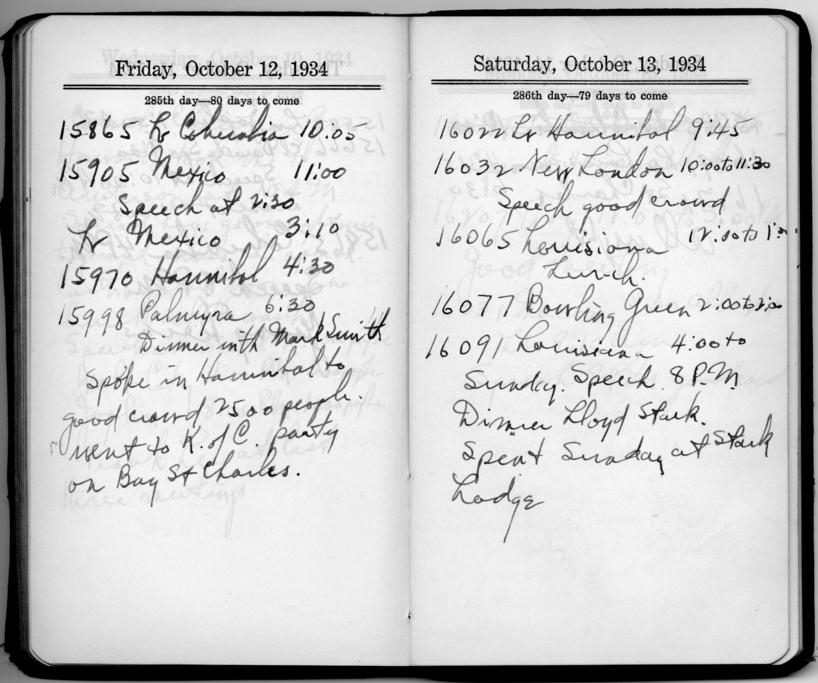 Friday, October 12, 1934
285th day—80 days to come
15865 Lv Columbia 10:05
15905 Mexico 11:00
Speech at 2:30
Lv Mexico 3:10
15970 Hannibal 4:30
15998 Palmyra 6:30
Dinner with Mark Smith
Spoke in Hannibal to
good crowd 2500 people.
went to K. of C. party
on Bay St Charles.
Saturday, October 13, 1934
286th day—79 days to come
16022 Lv Hannibal 9:45
16032 New London 10:00 to 11:30
Speech good crowd
16065 Louisiana 12:00 to
Lunch.
16077 Bowling Green 2:00 to
16091 Louisiana 4:00 to
Sunday. Speech 8 P.M.
Dinner Lloyd Stark.
Spent Sunday at Stark
Lodge